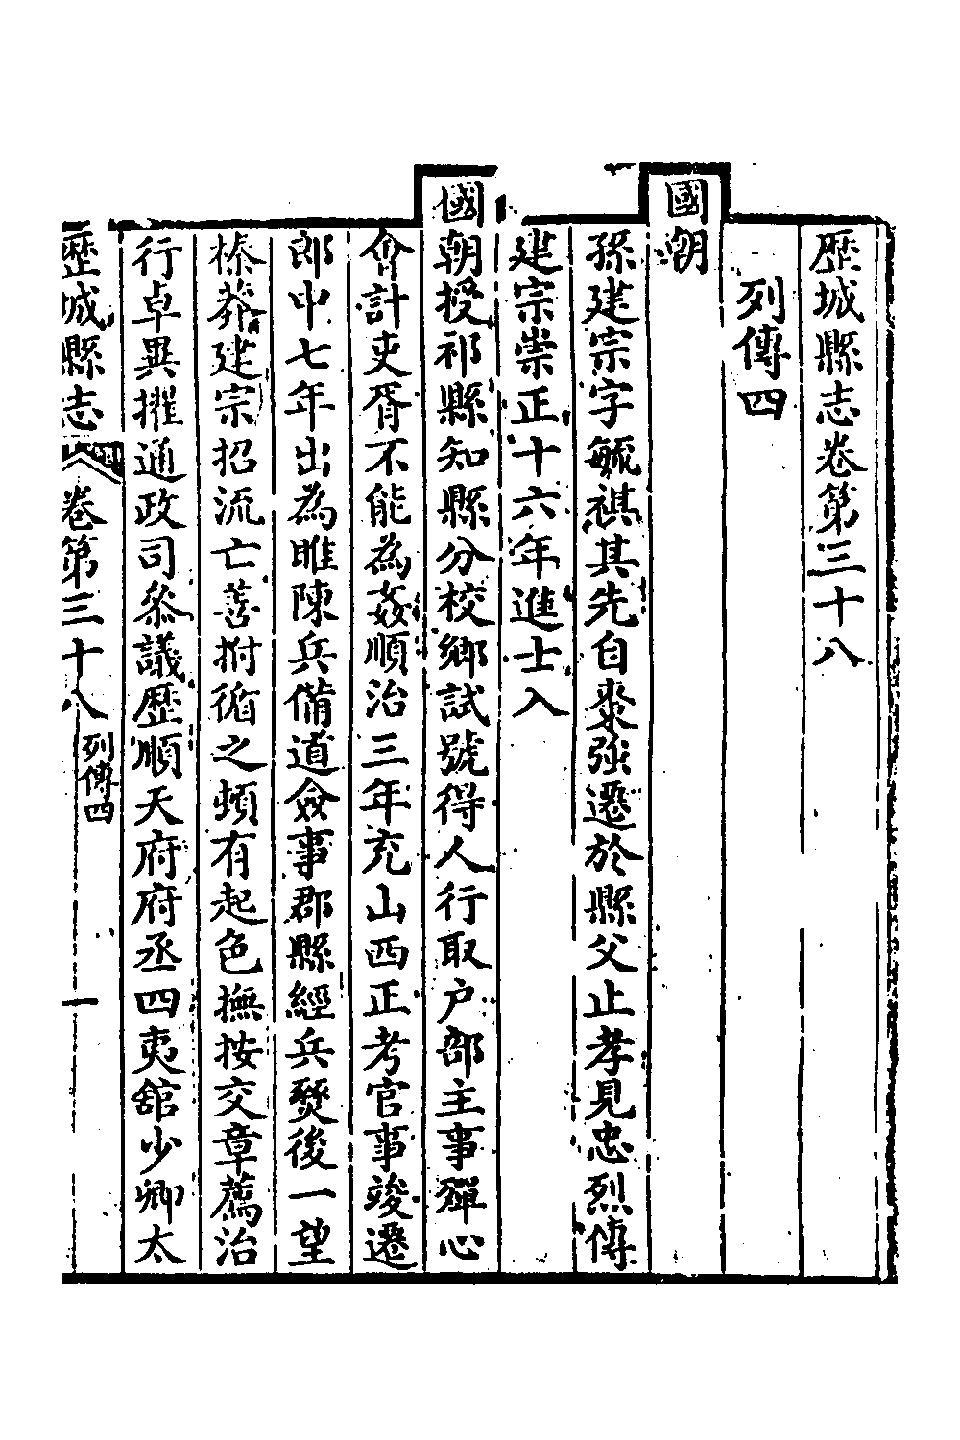 歷城縣志卷第三十八
列傳四
國朝
孫建宗字毓祺其先自棗强遷於縣父止孝見忠烈傳
建宗崇正十六年進士入
國朝授祁縣知縣分校鄉試號得人行取户部主事殫心
會計吏胥不能為姦順治三年充山西正考官事竣遷
郎中七年出為睢陳兵備道僉事郡縣經兵燹後一望
榛莽建宗招流亡善拊循之頗有起色撫按交章薦治
行卓異擢通政司叅議歷順天府府丞四夷舘少卿太
歷城縣志 卷第三十八 列傳四 一